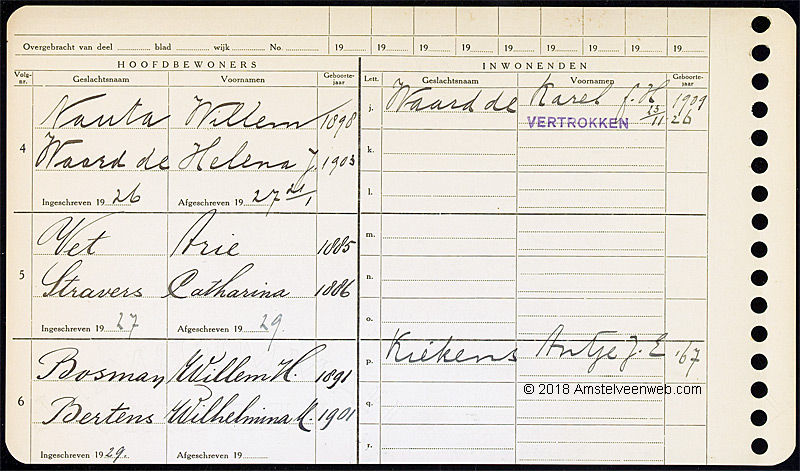 Overgebracht van deel blad wijk No. 19 19 19 19 19 19 19 19 19
HOOFDBEWONERS INWONENDEN
Volg-nr. Geslachtsnaam Voornamen Geboorte-jaar Lett. Geslachtsnaam Voornamen Geboorte-jaar
4 Nauta Willem 1898 j. Waard de Karel f. H 1909
VERTROKKEN 23/11 26
k.
Waard de Helena J. 1903
l.
Ingeschreven 1926 Afgeschreven 1927 21/1
m.
5 Vet Arie 1885
n.
Stravers Catharina 1886
o.
Ingeschreven 1927 Afgeschreven 1929
p. Kiekens Antje J. E '67
6 Bosman Willem H. 1891
q.
© 2018 Amstelveenweb.com
Bertens Wilhelmina M. 1901
r.
Ingeschreven 1929. Afgeschreven 19